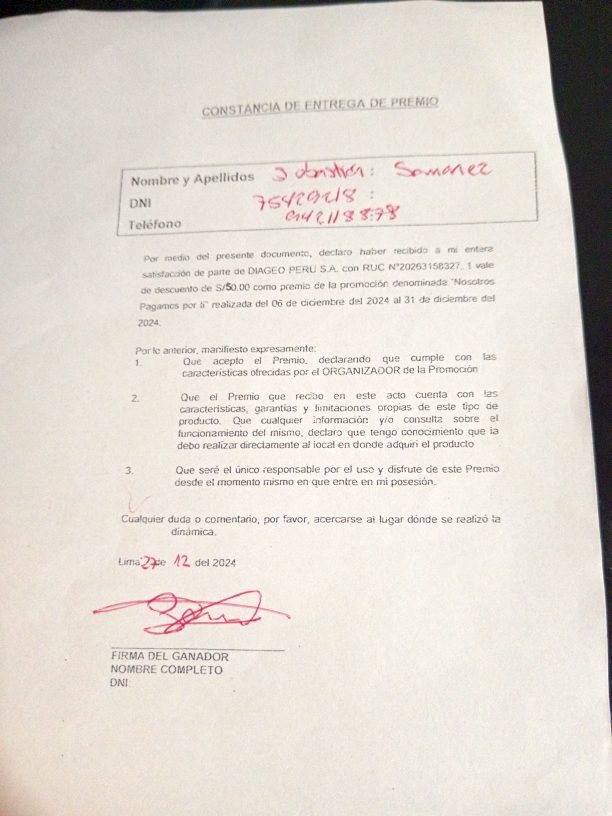 CONSTANCIA DE ENTREGA DE PREMIO
Nombre y Apellidos Samanez
DNI
Teléfono
Por medio del presente documento, declaro haber recibido a mi entera
satisfacción de parte de DIAGEO PERU S.A. con RUC N°20263158327, 1 vale
de descuento de S/50.00 como premio de la promoción denominada "Nosotros
Pagamos por ti" realizada del 06 de diciembre del 2024 al 31 de diciembre del
2024.
Por lo anterior, manifiesto expresamente:
1. Que acepto el Premio, declarando que cumple con las
características ofrecidas por el ORGANIZADOR de la Promoción
2. Que el Premio que recibo en este acto cuenta con las
características, garantías y limitaciones propias de este tipo de
producto. Que cualquier información y/o consulta sobre el
funcionamiento del mismo, declaro que tengo conocimiento que la
debo realizar directamente al local en donde adquirí el producto
3. Que seré el único responsable por el uso y disfrute de este Premio
desde el momento mismo en que entre en mi posesión.
Cualquier duda o comentario, por favor, acercarse al lugar dónde se realizó la
dinámica.
Lima 27 de 12 del 2024
FIRMA DEL GANADOR
NOMBRE COMPLETO
DNI: